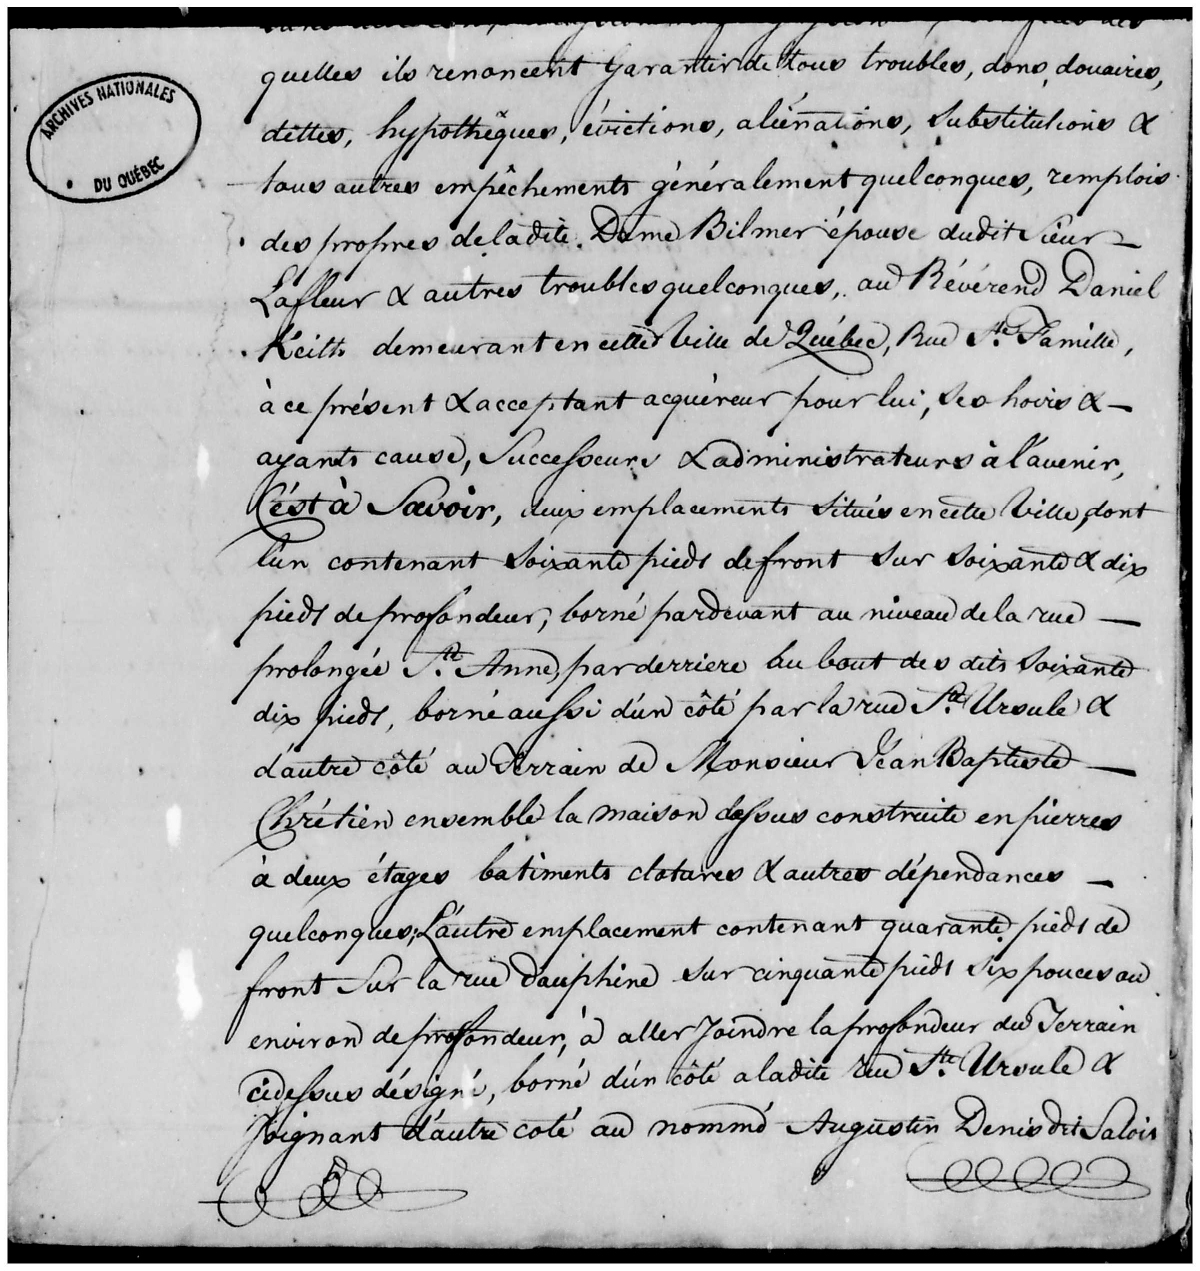 ARCHIVES NATIONALES
DU QUÉBEC
quelles ils renoncent Garantir de tous troubles, dons, douaires,
dettes, hypothêques, évictions, aliénations, substitutions &
tous autres empêchements généralement quelconques, remplois
des propres de ladite Dame Bilmer épouse dudit Sieur —
Lafleur & autres troubles quelconques, au Révérend Daniel
Keith demeurant en cette Ville de Québec, Rue Ste. Famille,
à ce présent & acceptant acquéreur pour lui, ses hoirs & —
ayants cause, Successeurs & administrateurs à l'avenir,
C'ést à Savoir, deux emplacements situés en cette Ville, dont
l'un contenant soixante pieds de front sur soixante & dix
pieds de profondeur, borné pardevant au niveau de la rue —
prolongée Ste. Anne, par derriere au bout des dits soixante
dix pieds, borné aussi d'un côté par la rue Ste. Ursule &
d'autre côté au Terrain de Monsieur Jean Baptiste —
Chrétien ensemble la maison dessus construite en pierres
à deux étages batiments clotures & autres dépendances —
quelconques; L'autre emplacement contenant quarante pieds de
front Sur la rue Dauphine sur cinquante pieds six pouces ou
environ de profondeur, à aller Joindre la profondeur du Terrain
cidessus désigné, borné d'un côté a ladite rue Ste. Ursule &
Joignant d'autre coté au nommé Augustin Denis dit Salois